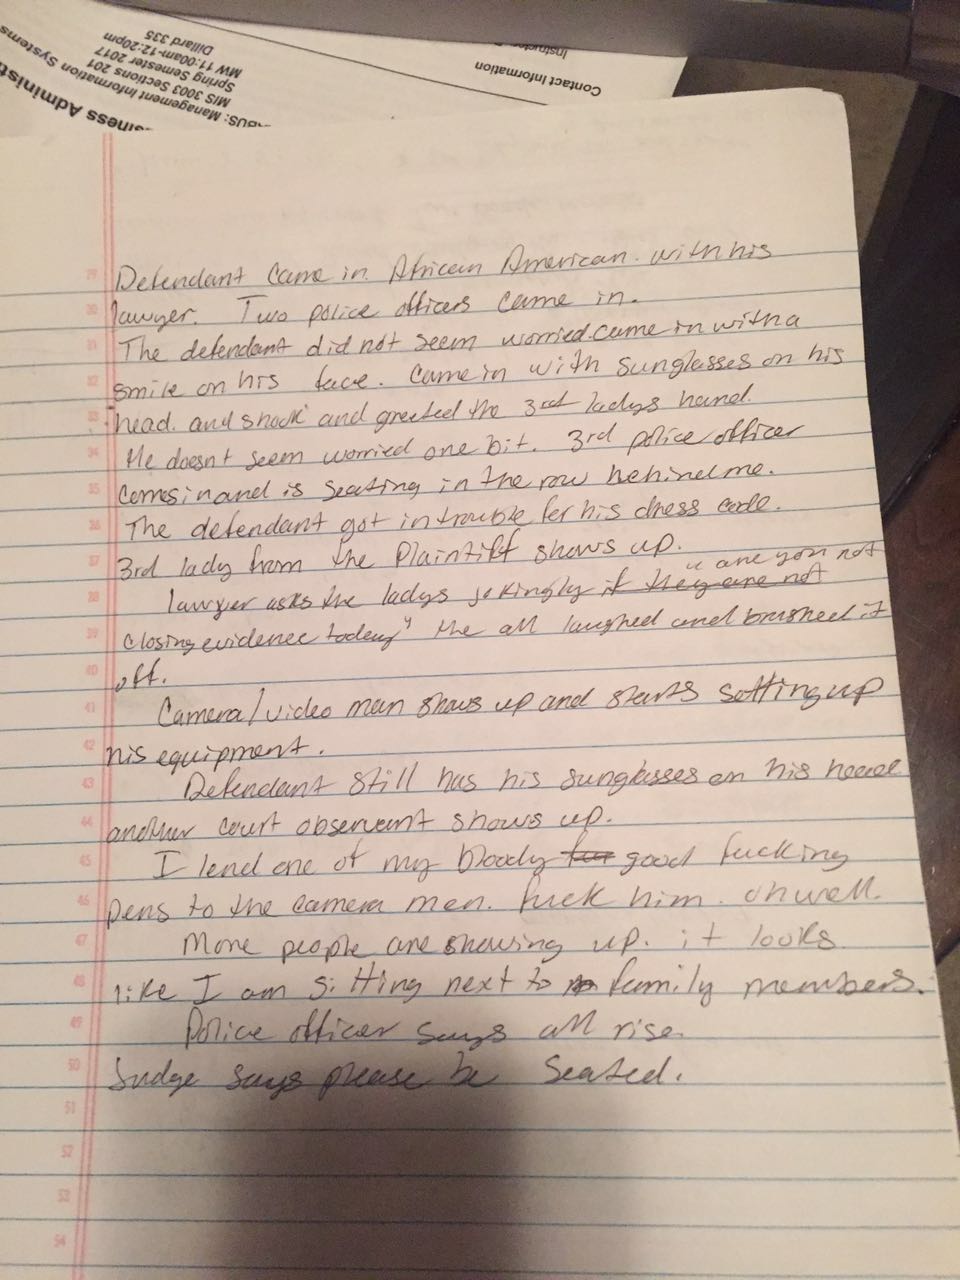 Business Administ
ABUS: Management Information Systems
MIS 3003 Sections 201
Spring Semester 2017
MW 11:00am-12:20pm
Dillard 335
Contact Information
29 Defendant came in. African American. with his
30 lawyer. Two police officers came in.
31 The defendant did not seem worried. came in with a
32 smile on his face. Came in with sunglasses on his
33 head. and shook and greeted the 3rd ladys hand.
34 He doesnt seem worried one bit. 3rd police officer
35 comes in and is seating in the row behind me.
36 The defendant got in trouble for his dress code.
37 3rd lady from the Plaintiff shows up.
38 lawyer asks the ladys jokingly if they are not "are you not
39 closing evidence today" the all laughed and brushed it
40 off.
41 Camera/video man shows up and starts setting up
42 his equipment.
43 Defendant still has his sunglasses on his head
44 another court observant shows up.
45 I lend one of my bloody good fucking
46 pens to the camera man. Fuck him. oh well.
47 More people are showing up. it looks
48 like I am sitting next to family members.
49 Police officer says all rise.
50 Judge says please be seated.
51
52
53
54